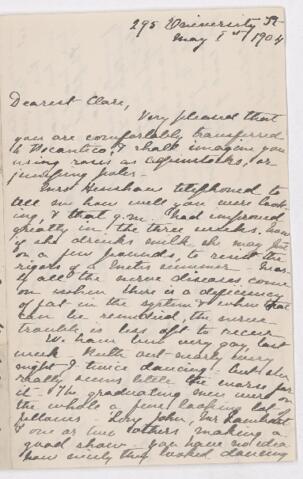 295 University St
May 1st 1904
Dearest Clare,
Very pleased that
you are comfortably transferred
to Mecantico, I shall imagine you
using rods as alpenstocks, or
jumping poles—
Mrs. Henshaw telephoned to
tell me how well you were look-
ing, & that g.m. had improved
greatly in the three weeks. Now
if she drinks milk she may put
on a few pounds, to resist the
rigors of a Metis summer—
all the nerve diseases come
on when there is a deficiency
of fat in the system & when that
can be remedied, the nerve
trouble is less apt to recur
We have been very gay last
week Ruth out nearly every
night & twice dancing— but she
really seems little the worse for
it— The graduating men were on
the whole a fine looking lot of
fellows— John,
& one or two others making a
good show— you have no idea
how nicely they looked dancing